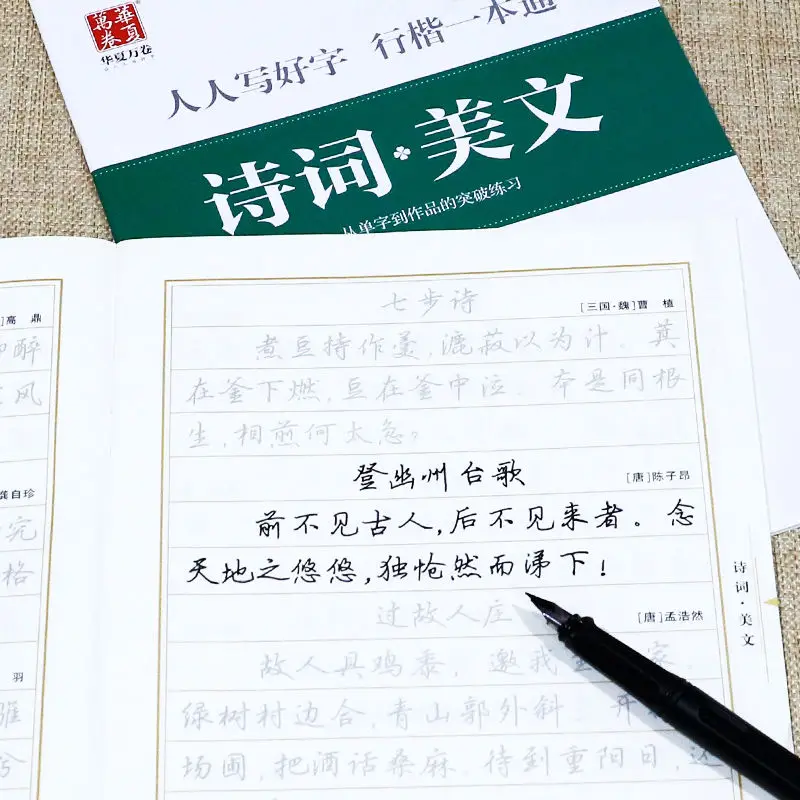 萬華
卷夏
华夏万卷
人人写好字 行楷一本通
诗词·美文
从单字到作品的突破练习
]高 鼎
醉
风
龚自珍
究
格
羽
骓
兮
七步诗
[三国·魏]曹 植
煮豆持作羹,漉菽以为汁。萁
在釜下燃,豆在釜中泣。本是同根
生,相煎何太急。
登幽州台歌
[唐]陈子昂
前不见古人,后不见来者。念
天地之悠悠,独怆然而涕下!
过故人庄
[唐]孟浩然
故人具鸡黍,邀我 家。
绿树村边合,青山郭外斜。开
场圃,把酒话桑麻。待到重阳日,还
诗词·美文